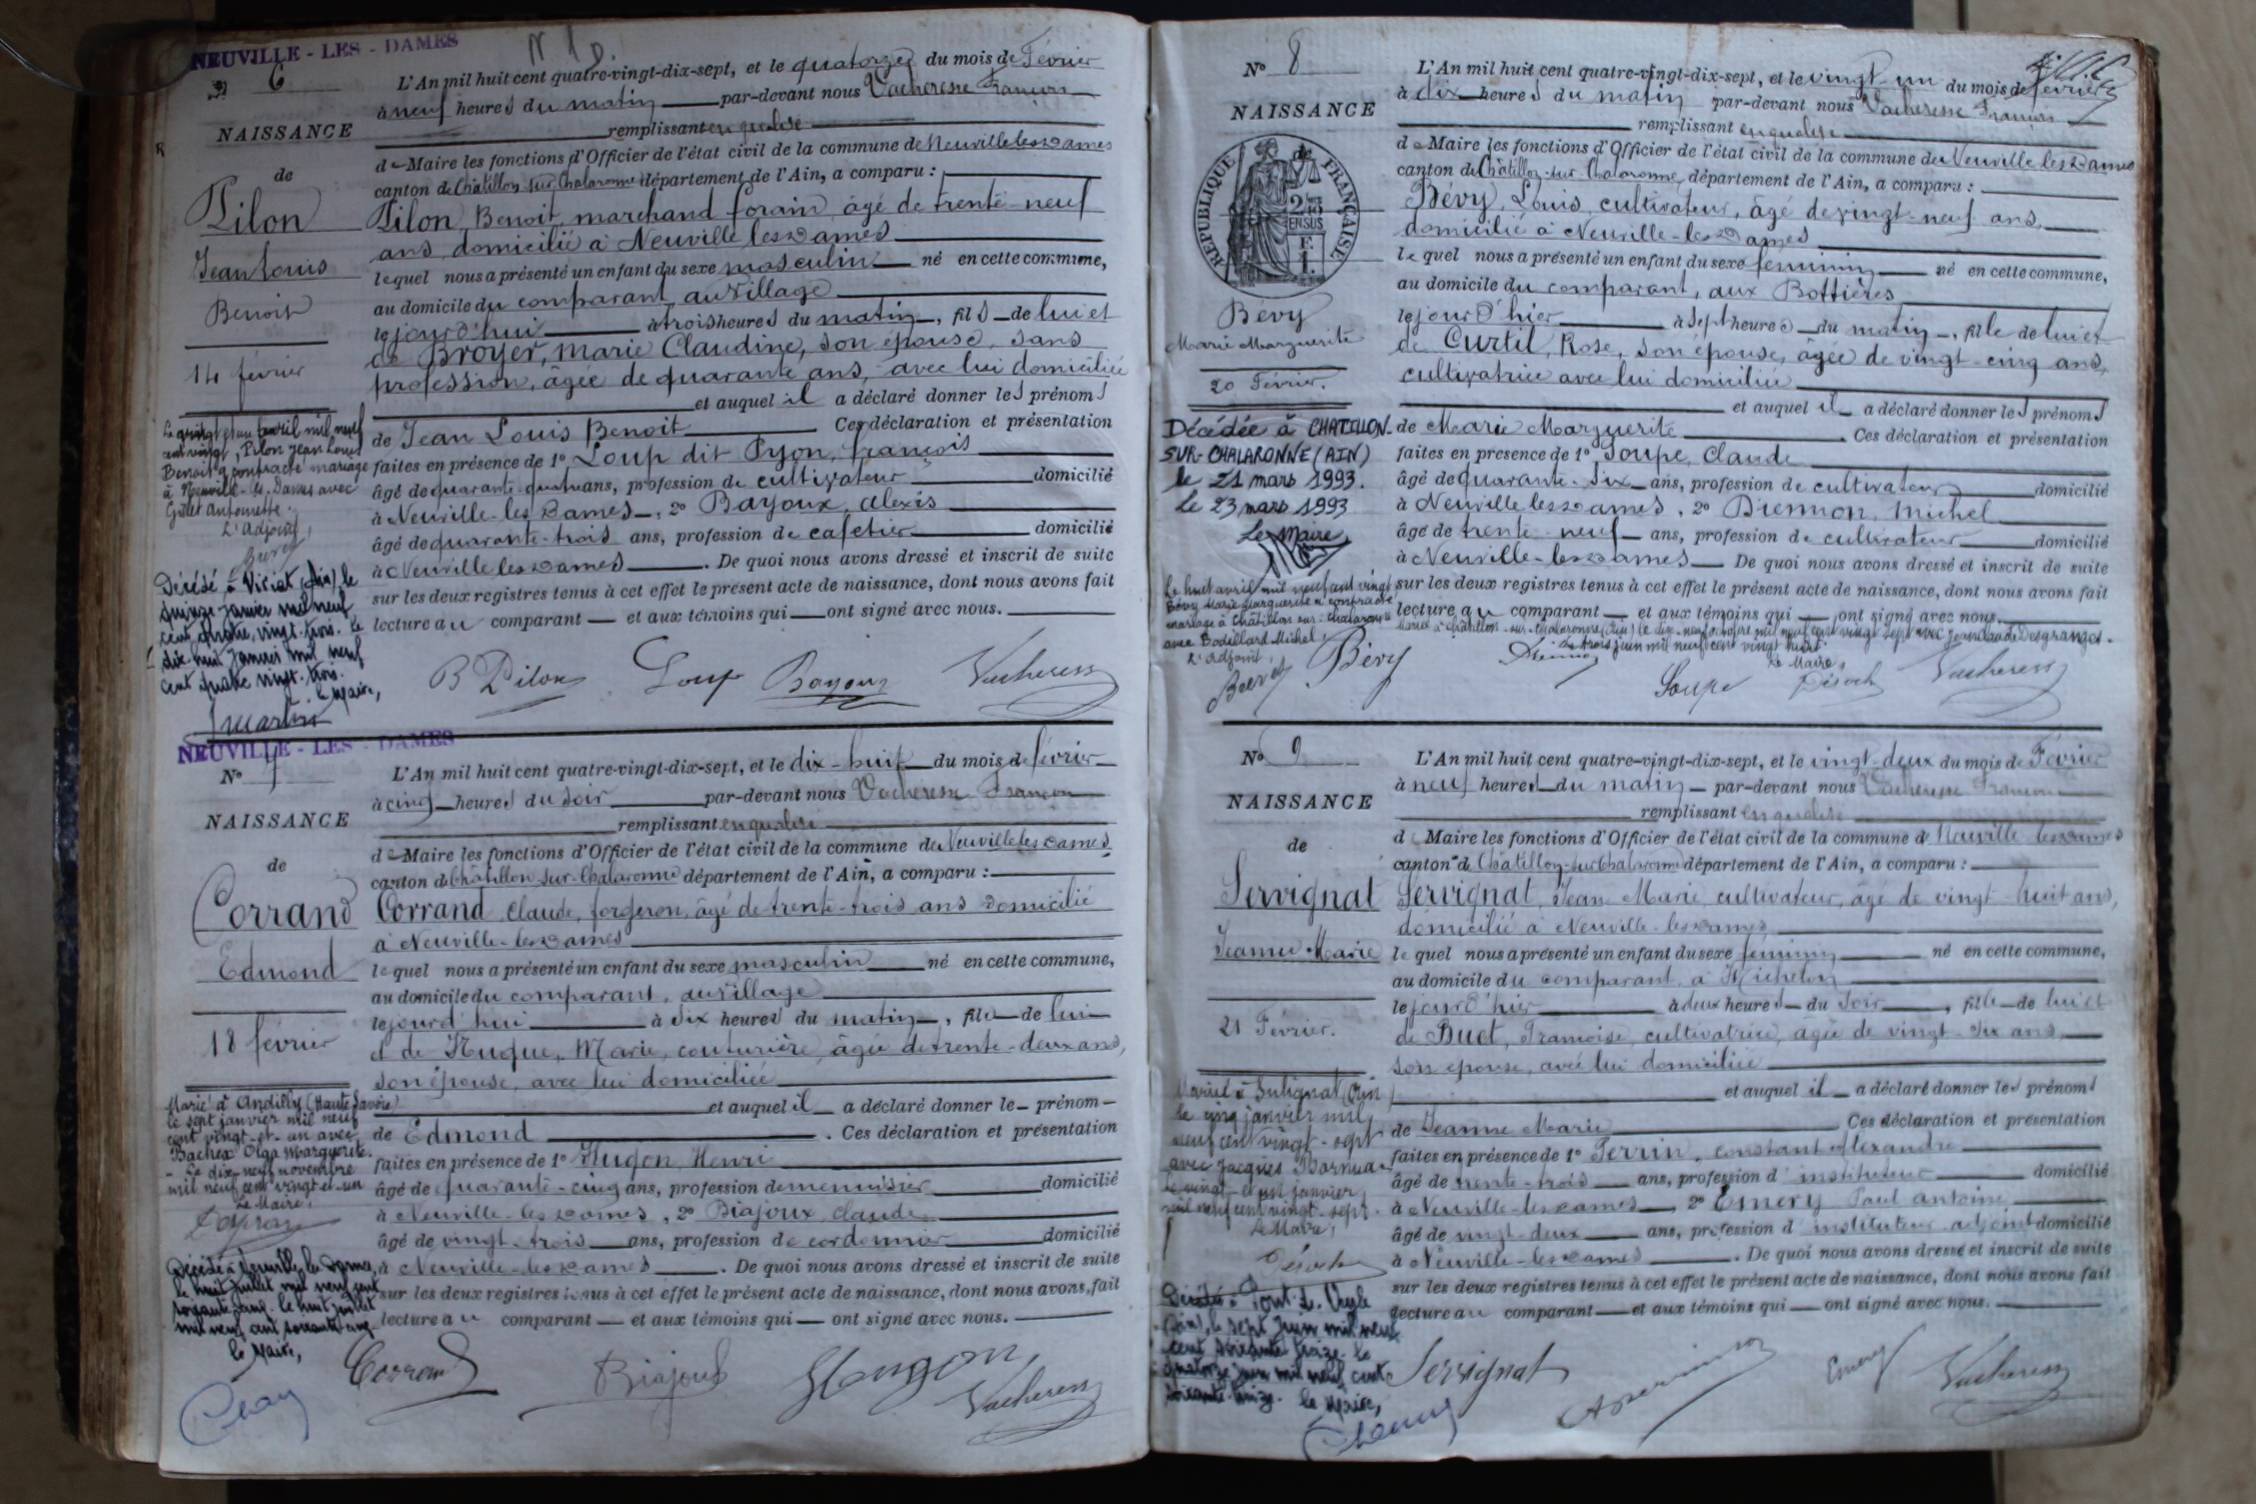 NEUVILLE - LES - DAMES
N° 6
NAISSANCE
de
Pilon
Jean Louis
Benoit
14 février
Le vingt et un avril mil neuf
cent vingt, Pilon Jean Louis
Benoit a contracté mariage
à Neuville-les-Dames avec
Antoinette.
L'Adjoint,
Décédé à (Ain) le
quinze janvier mil neuf
cent quatre vingt-trois. Le
dix-huit janvier mil neuf
cent quatre vingt-trois.
le Maire,
L'An mil huit cent quatre-vingt-dix-sept, et le quatorze du mois de Février
à neuf heures du matin par-devant nous Vacheresse François
remplissant en qualité
de Maire les fonctions d'Officier de l'état civil de la commune de Neuville les Dames
canton de Châtillon sur Chalaronne département de l'Ain, a comparu :
Pilon, Benoit, marchand forain, âgé de trente-neuf
ans, domicilié à Neuville les Dames
lequel nous a présenté un enfant du sexe masculin né en cette commune,
au domicile du comparant, au village
le jourd'hui à trois heures du matin, fils de lui et
de Broyer, Marie Claudine, son épouse, sans
profession, âgée de quarante ans, avec lui domiciliée
et auquel il a déclaré donner les prénoms
de Jean Louis Benoit Ces déclaration et présentation
faites en présence de 1° Loup dit Pyon, François
âgé de quarante-quatre ans, profession de cultivateur domicilié
à Neuville-les Dames, 2° Bayoux, Alexis
âgé de quarante-trois ans, profession de cafetier domicilié
à Neuville les Dames. De quoi nous avons dressé et inscrit de suite
sur les deux registres tenus à cet effet le présent acte de naissance, dont nous avons fait
lecture au comparant et aux témoins qui ont signé avec nous.
B Pilon Loup Bayoux Vacheresse
NEUVILLE - LES - DAMES
N° 7
NAISSANCE
de
Corrand
Edmond
18 février
Marié à Andilly (Haute Savoie)
le sept janvier mil neuf
cent vingt-et-un avec
Bachex Olga Marguerite.
- Le dix-neuf novembre
mil neuf cent vingt-et-un
Le Maire,
Décédé à Neuville les Dames,
le huit juillet mil neuf cent
soixante cinq. Le huit juillet
mil neuf cent soixante cinq
le Maire,
L'An mil huit cent quatre-vingt-dix-sept, et le dix-huit du mois de février
à cinq heures du soir par-devant nous Vacheresse François
remplissant en qualité
de Maire les fonctions d'Officier de l'état civil de la commune de Neuville les Dames
canton de Châtillon-sur-Chalaronne département de l'Ain, a comparu :
Corrand, Claude, forgeron, âgé de trente-trois ans domicilié
à Neuville-les-Dames
lequel nous a présenté un enfant du sexe masculin né en cette commune,
au domicile du comparant, au village
le jourd'hui à dix heures du matin, fils de lui
et de Huque, Marie, couturière, âgée de trente-deux ans,
son épouse, avec lui domiciliée
et auquel il a déclaré donner le prénom
de Edmond. Ces déclaration et présentation
faites en présence de 1° Hugon, Henri
âgé de quarante-cinq ans, profession de menuisier domicilié
à Neuville-les Dames, 2° Biajoux, Claude
âgé de vingt-trois ans, profession de cordonnier domicilié
à Neuville-les-Dames. De quoi nous avons dressé et inscrit de suite
sur les deux registres tenus à cet effet le présent acte de naissance, dont nous avons fait
lecture au comparant et aux témoins qui ont signé avec nous.
Corrand Biajoux Hugon, Vacheresse
N° 8
NAISSANCE
de
RÉPUBLIQUE FRANÇAISE
Bévy
Marie Marguerite
20 Février.
Décédée à CHATILLON-
SUR-CHALARONNE (AIN)
le 21 mars 1993.
Le 23 mars 1993
Le Maire,
Le huit avril mil neuf cent vingt
Bévy Marie Marguerite a contracté
mariage à Châtillon-sur-Chalaronne
avec Bodillard Michel.
L'Adjoint,
L'An mil huit cent quatre-vingt-dix-sept, et le vingt-un du mois de février
à dix heures du matin par-devant nous Vacheresse François
remplissant en qualité
de Maire les fonctions d'Officier de l'état civil de la commune de Neuville les Dames
canton de Châtillon-sur-Chalaronne, département de l'Ain, a comparu :
Bévy, Louis, cultivateur, âgé de vingt-neuf ans,
domicilié à Neuville-les Dames
lequel nous a présenté un enfant du sexe féminin né en cette commune,
au domicile du comparant, aux Bottières
le jour d'hier à sept heures du matin, fille de lui et
de Curtil, Rose, son épouse, âgée de vingt-cinq ans,
cultivatrice avec lui domiciliée
et auquel il a déclaré donner les prénoms
de Marie Marguerite. Ces déclaration et présentation
faites en présence de 1° Soupe, Claude
âgé de quarante-six ans, profession de cultivateur domicilié
à Neuville les Dames, 2° Michel
âgé de trente-neuf ans, profession de cultivateur domicilié
à Neuville-les Dames De quoi nous avons dressé et inscrit de suite
sur les deux registres tenus à cet effet le présent acte de naissance, dont nous avons fait
lecture au comparant et aux témoins qui ont signé avec nous.
Mariée à Châtillon-sur-Chalaronne (Ain) le dix-neuf octobre mil neuf cent vingt sept avec Desgranges.
Le trois juin mil neuf cent vingt huit.
Le Maire,
Bévy Soupe Vacheresse
N° 9
NAISSANCE
de
Servignat
Jeanne Marie
21 Février.
Mariée à Sulignat (Ain)
le cinq janvier mil
neuf cent vingt-sept
avec Jacques
Le vingt-et-un janvier
mil neuf cent vingt-sept.
Le Maire,
Décédée à Pont-de-Veyle
(Ain), le sept juin mil neuf
cent soixante treize. Le
quatorze juin mil neuf cent
soixante-treize. le Maire,
L'An mil huit cent quatre-vingt-dix-sept, et le vingt-deux du mois de Février
à neuf heures du matin par-devant nous Vacheresse François
remplissant en qualité
de Maire les fonctions d'Officier de l'état civil de la commune de Neuville les Dames
canton de Châtillon-sur-Chalaronne département de l'Ain, a comparu :
Servignat, Jean Marie, cultivateur, âgé de vingt-huit ans,
domicilié à Neuville-les Dames
lequel nous a présenté un enfant du sexe féminin né en cette commune,
au domicile du comparant, à
le jour d'hier à deux heures du soir, fille de lui et
de Buet, Françoise, cultivatrice, âgée de vingt-six ans
son épouse, avec lui domiciliée
et auquel il a déclaré donner les prénoms
de Jeanne Marie Ces déclaration et présentation
faites en présence de 1° Perrin, Constant Alexandre
âgé de trente-trois ans, profession d'instituteur domicilié
à Neuville-les Dames, 2° Emery Paul Antoine
âgé de vingt-deux ans, profession d'instituteur adjoint domicilié
à Neuville-les Dames. De quoi nous avons dressé et inscrit de suite
sur les deux registres tenus à cet effet le présent acte de naissance, dont nous avons fait
lecture au comparant et aux témoins qui ont signé avec nous.
Servignat Emery Vacheresse